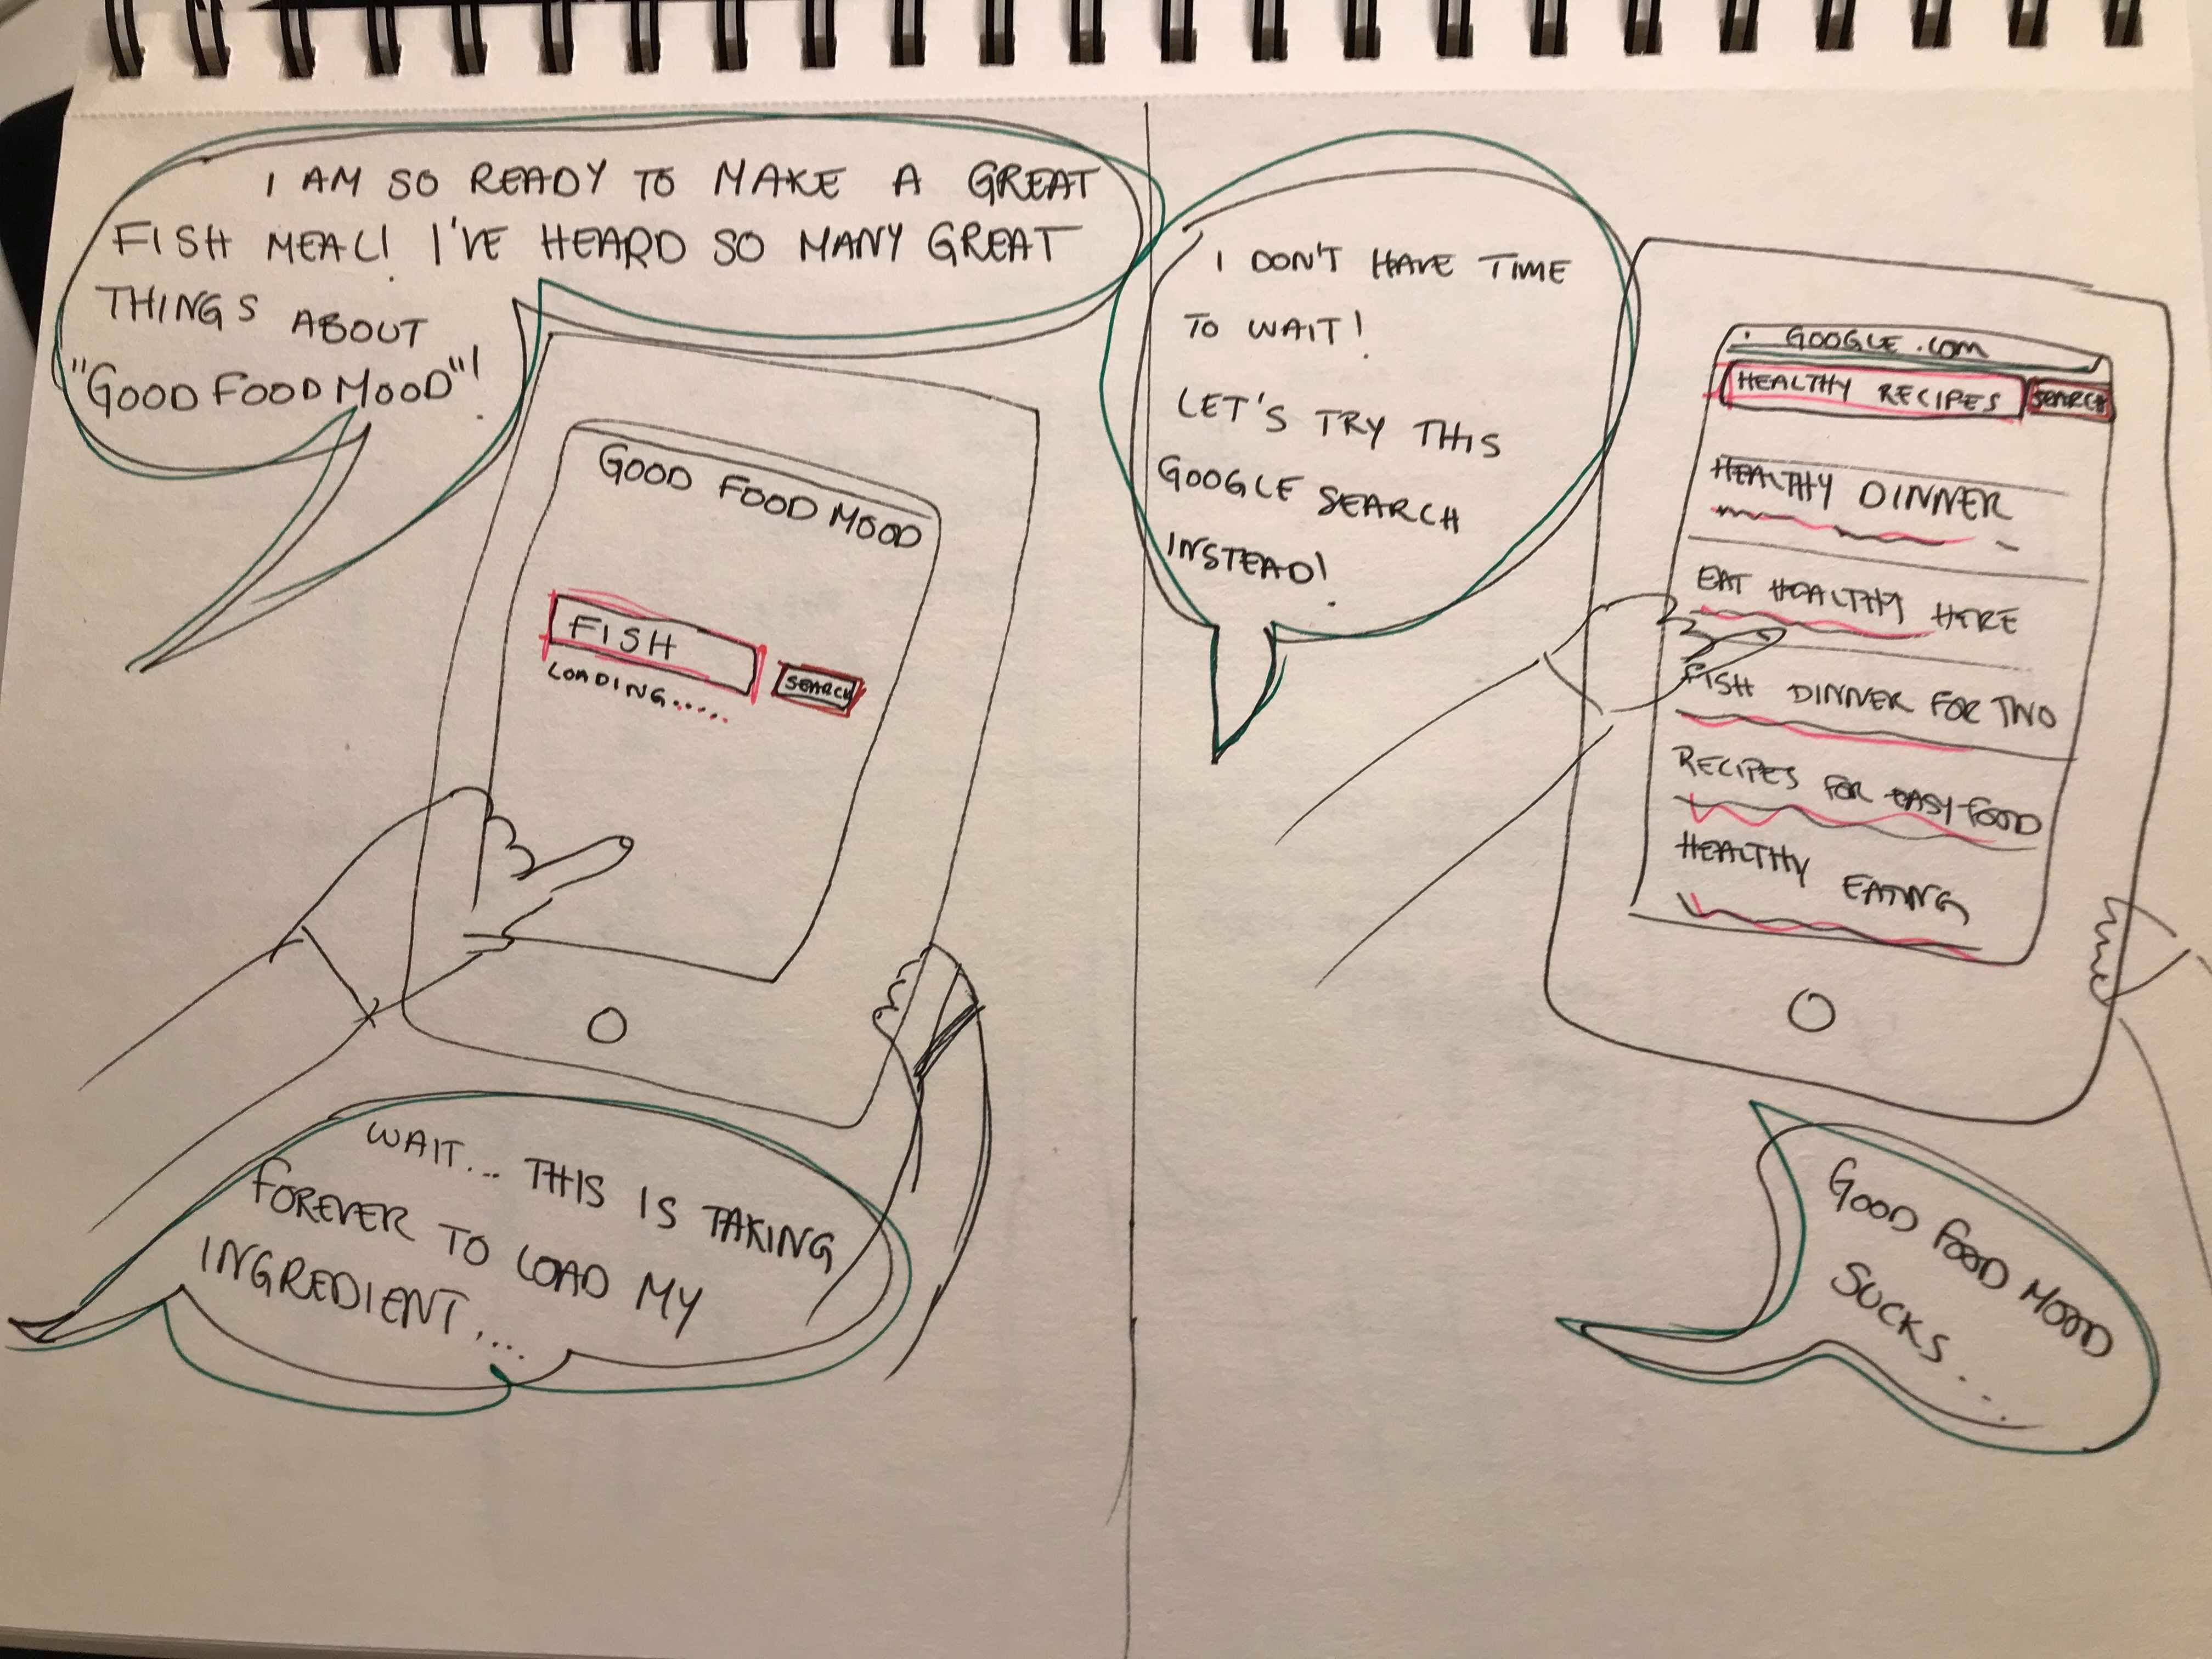 I AM SO READY TO MAKE A GREAT
FISH MEAL! I'VE HEARD SO MANY GREAT
THINGS ABOUT
"GOOD FOOD MOOD"!
GOOD FOOD MOOD
FISH
SEARCH
LOADING.....
WAIT... THIS IS TAKING
FOREVER TO LOAD MY
INGREDIENT....
I DON'T HAVE TIME
TO WAIT!
LET'S TRY THIS
GOOGLE SEARCH
INSTEAD!
GOOGLE.COM
HEALTHY RECIPES
SEARCH
HEALTHY DINNER
EAT HEALTHY HERE
FISH DINNER FOR TWO
RECIPES FOR EASY FOOD
HEALTHY EATING
GOOD FOOD MOOD
SUCKS...